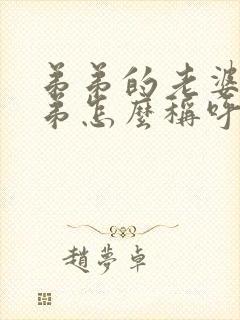 弟弟的老婆
弟怎麼稱呼
趙夢卓